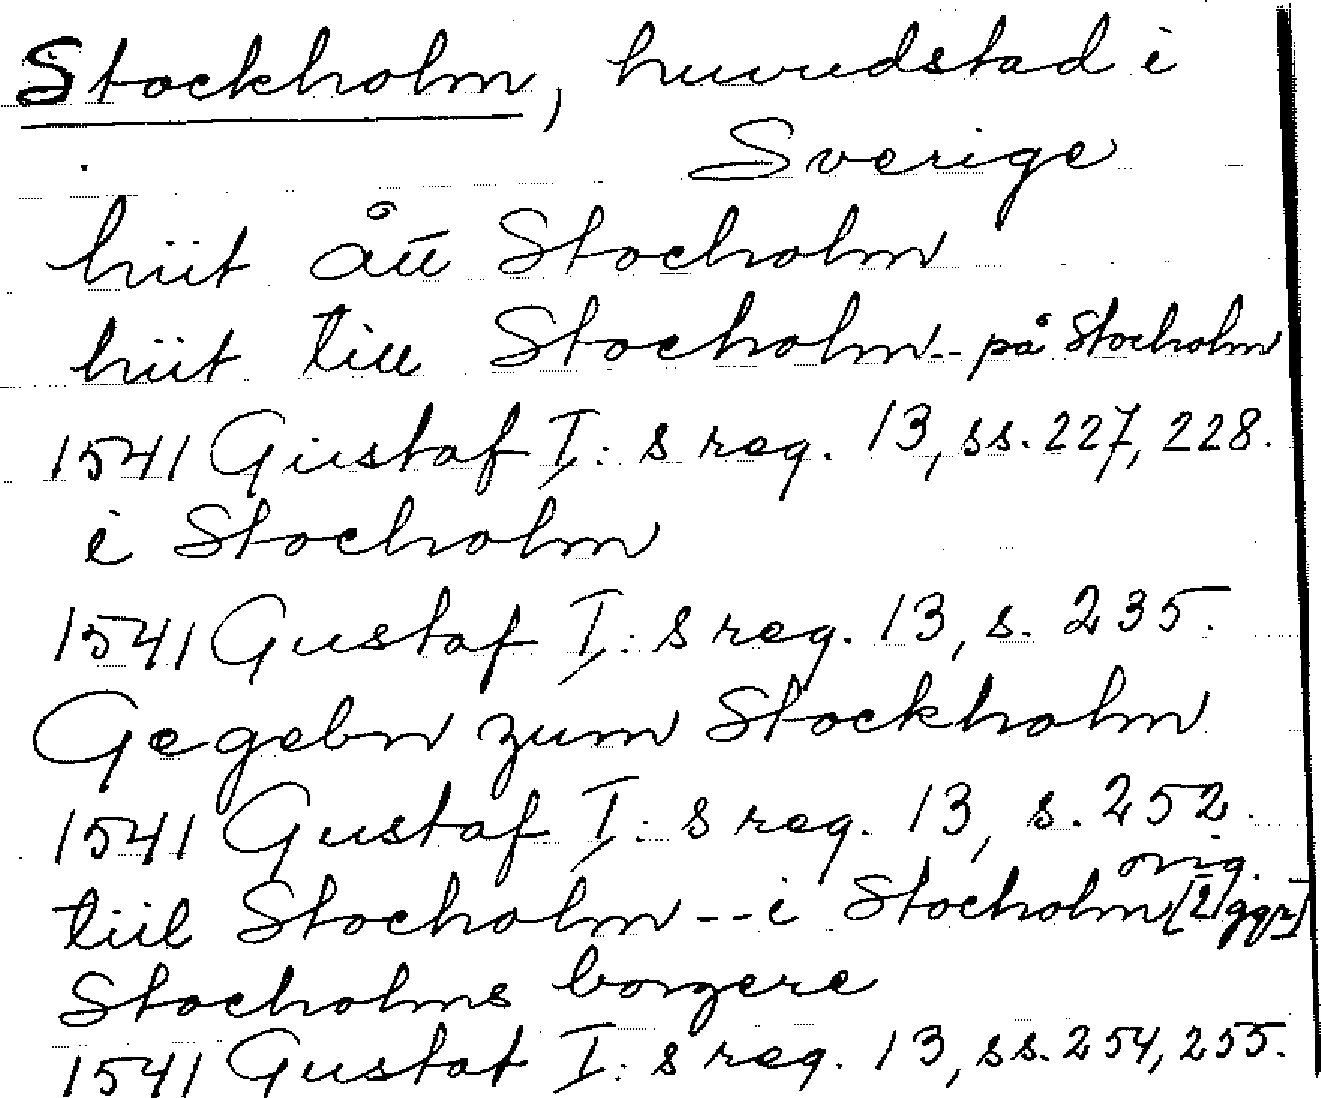 Stockholm, huvudstad i
Sverige
hiit ått Stocholm
hiit till Stocholm -- på Stocholm
1541 Gustaf I:s reg. 13, ss. 227, 228.
i Stocholm
1541 Gustaf I:s reg. 13, s. 235.
Gegebn zum Stockholm
1541 Gustaf I:s reg. 13, s. 252.
orig.
tiil Stocholm -- i Stocholm [2 ggr]
Stocholms borgere
1541 Gustaf I:s reg. 13, ss. 254, 255.